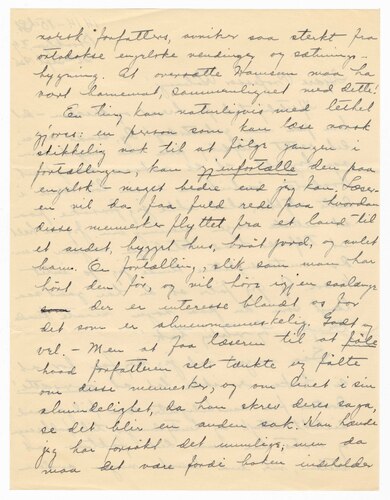 norsk forfatters, viniker saa sterkt fra
ortodokse engelske vendinger og sætnings-
bygning. At oversætte Hamsun maa ha
vært barnemat, sammenlignet med dette!
En ting kan naturligvis med lethet
gjøres: en person som kan læse norsk
stikkelig nok til at følge gangen i
fortællingen, kan gjenfortælle den paa
engelsk – meget bedre end jeg kan. Læser-
en vil da faa fuld rede paa hvordan
disse mennesker flyttet fra et land til
et andet, bygget hus, brøit jord, og avlet
barn. En fortælling, slik som man har
hørt den før, og vil høre igjen saalænge
der er interesse blandt os for
det som er almenmenneskelig. Godt og
vel. – Men at faa læseren til at føle
hvad forfatteren selv tænkte og følte
om disse mennesker, og om livet i sin
almindelighet, da han skrev deres saga,
se det blir en anden sak. Kan hænde
jeg har forsøkt det umulige, men da
maa det være fordi boken indeholder